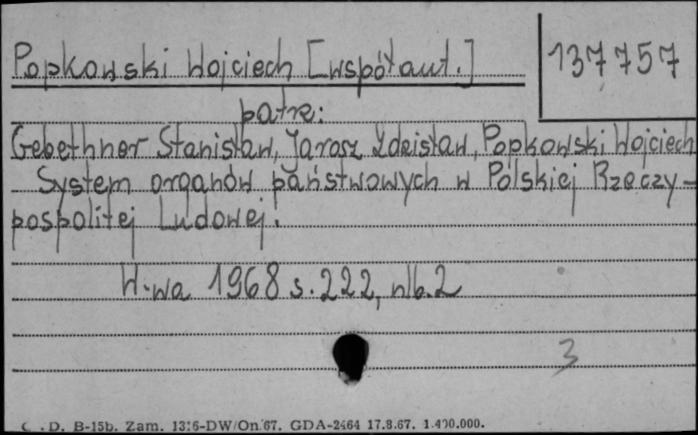 Popkowski Wojciech [współaut.]
137757
patrz:
Gebethner Stanisław, Jarosz Zdzisław, Popkowski Wojciech
System organów państwowych w Polskiej Rzeczy-
pospolitej Ludowej.
W-wa 1968 s. 222, nlb. 2
3
C.D. B-15b. Zam. 1316-DW/On.67. GDA-2464 17.8.67. 1.400.000.